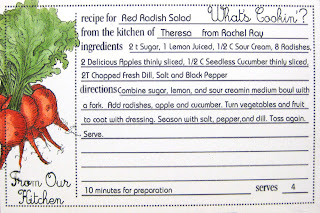 recipe for Red Radish Salad What's Cookin'?
from the kitchen of Theresa from Rachel Ray
ingredients 2 t Sugar, 1 Lemon Juiced, 1/2 C Sour Cream, 8 Radishes,
2 Delicious Apples thinly sliced, 1/2 C Seedless Cucumber thinly sliced,
2T Chopped Fresh Dill, Salt and Black Pepper
directions Combine sugar, lemon, and sour creamin medium bowl with
a fork. Add radishes, apple and cucumber. Turn vegetables and fruit
to coat with dressing. Season with salt, pepper, and dill. Toss again.
Serve.
From Our
Kitchen
10 minutes for preparation serves 4